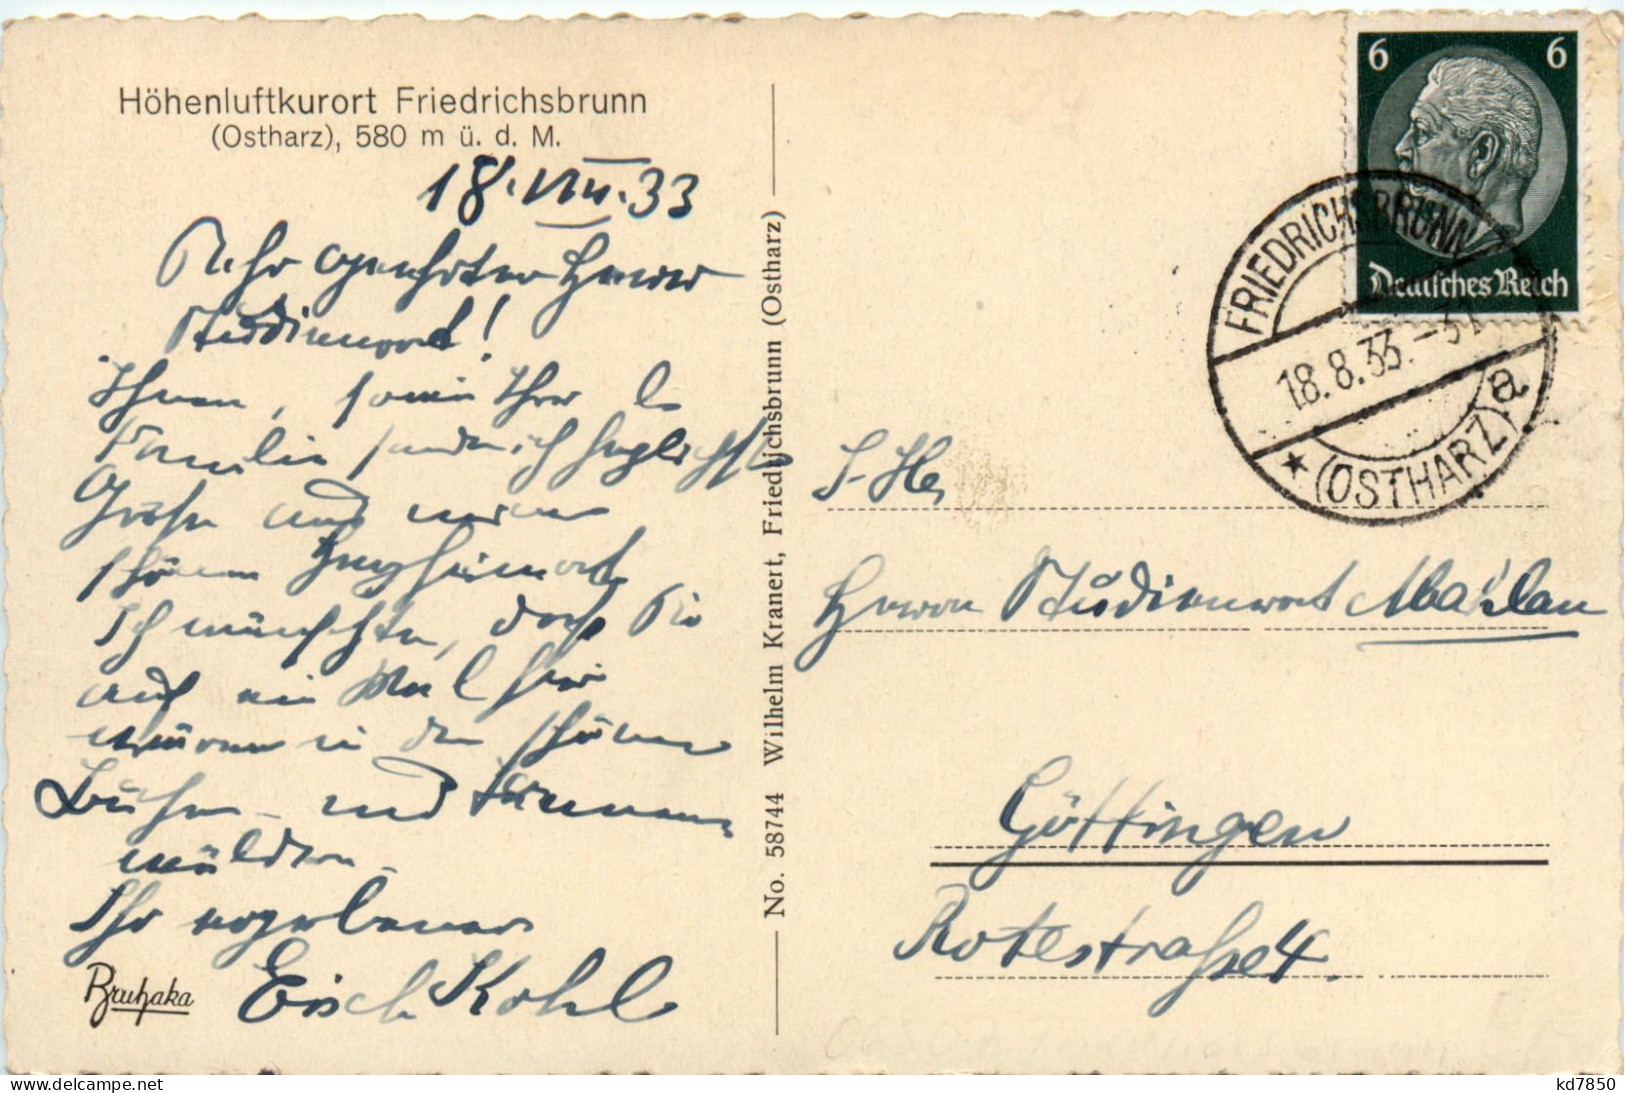 Höhenluftkurort Friedrichsbrunn
(Ostharz), 580 m ü. d. M.
18. VIII. 33
Sehr geehrter Herr
Studienrat!
Ihnen, sowie Ihrer l.
Familie sende ich herzlichste
Grüße aus meinem
schönen
Ich wünschte, daß Sie
auch ein Mal hier
wären in den schönen
Buchen- und Tannen-
wäldern.
Ihr ergebener
Erich Kohl
Bruhaka
No. 58744 Wilhelm Kranert, Friedrichsbrunn (Ostharz)
6 6
Deutsches Reich
FRIEDRICHSBRUNN
18.8.33.
a
(OSTHARZ)
Herrn Studienrat
Göttingen
Rotestraße 4.
kd7850
delcampe.net